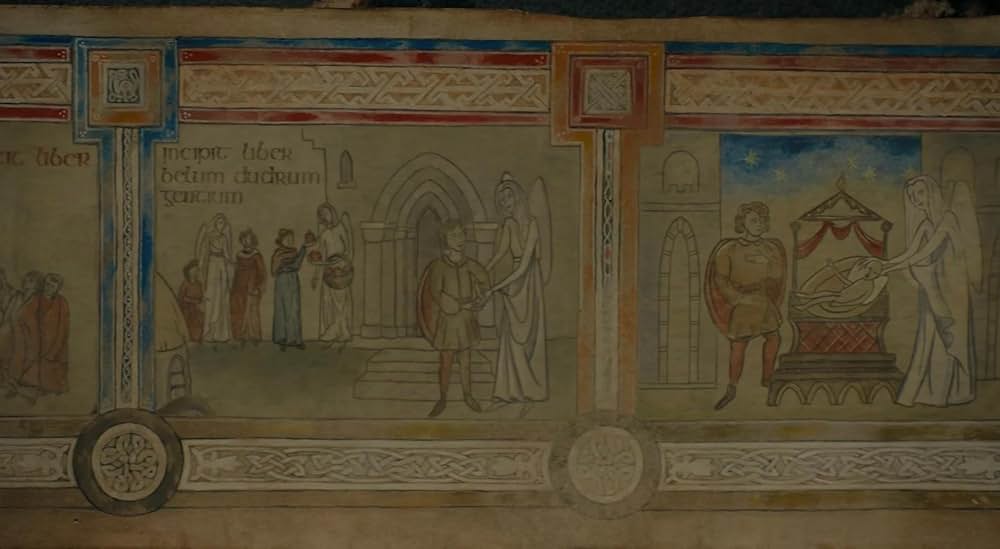 cit liber
incipit liber
belum duorum
gencium